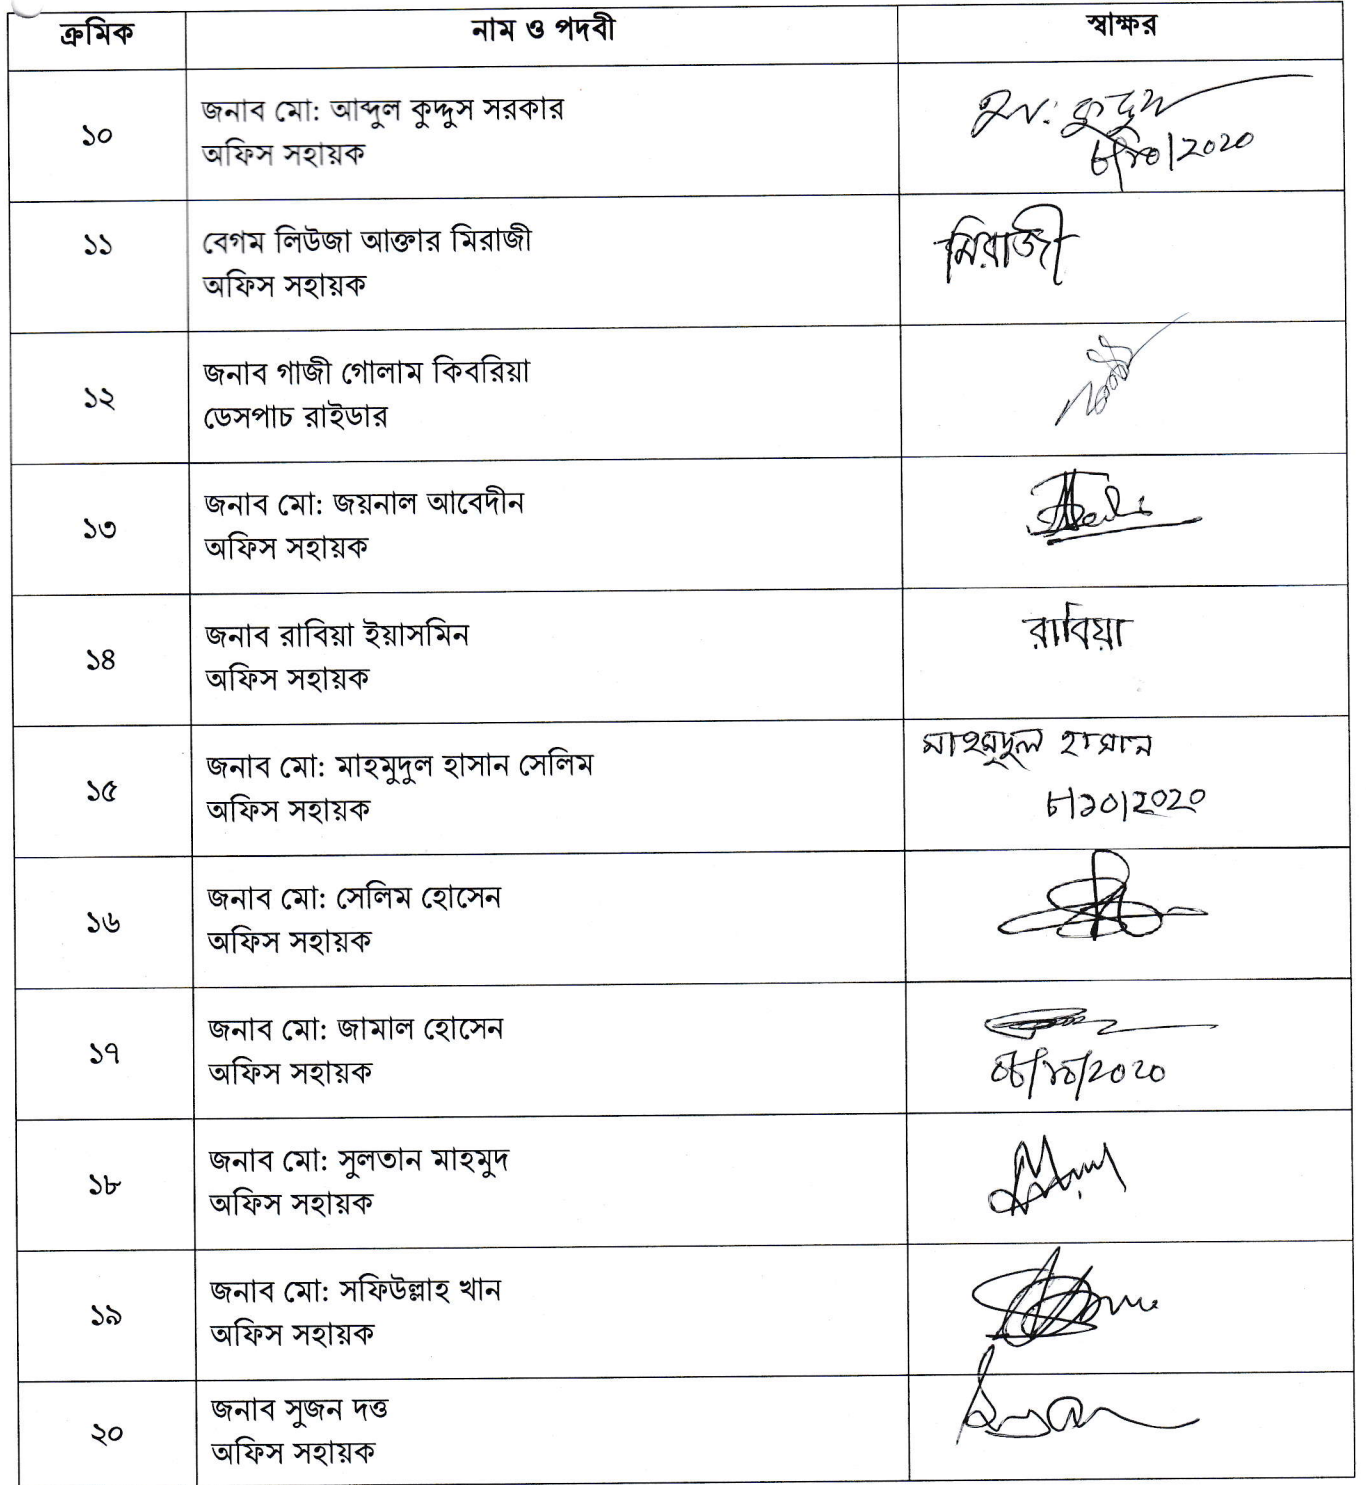 ক্রমিক নাম ও পদবী স্বাক্ষর
১০ জনাব মো: আব্দুল কুদ্দুস সরকার
অফিস সহায়ক
কুদ্দুস
৮/১০/২০২০
১১ বেগম লিউজা আক্তার মিরাজী
অফিস সহায়ক
মিরাজী
১২ জনাব গাজী গোলাম কিবরিয়া
ডেসপাচ রাইডার
১৩ জনাব মো: জয়নাল আবেদীন
অফিস সহায়ক
১৪ জনাব রাবিয়া ইয়াসমিন
অফিস সহায়ক
রাবিয়া
১৫ জনাব মো: মাহমুদুল হাসান সেলিম
অফিস সহায়ক
মাহমুদুল হাসান
৮/১০/২০২০
১৬ জনাব মো: সেলিম হোসেন
অফিস সহায়ক
১৭ জনাব মো: জামাল হোসেন
অফিস সহায়ক
০৮/১০/২০২০
১৮ জনাব মো: সুলতান মাহমুদ
অফিস সহায়ক
১৯ জনাব মো: সফিউল্লাহ খান
অফিস সহায়ক
২০ জনাব সুজন দত্ত
অফিস সহায়ক